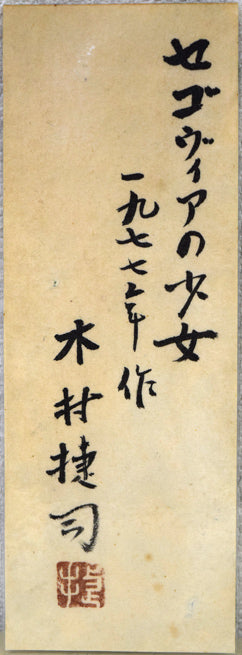 セゴヴィアの少女
一九七七年作
木村捷司